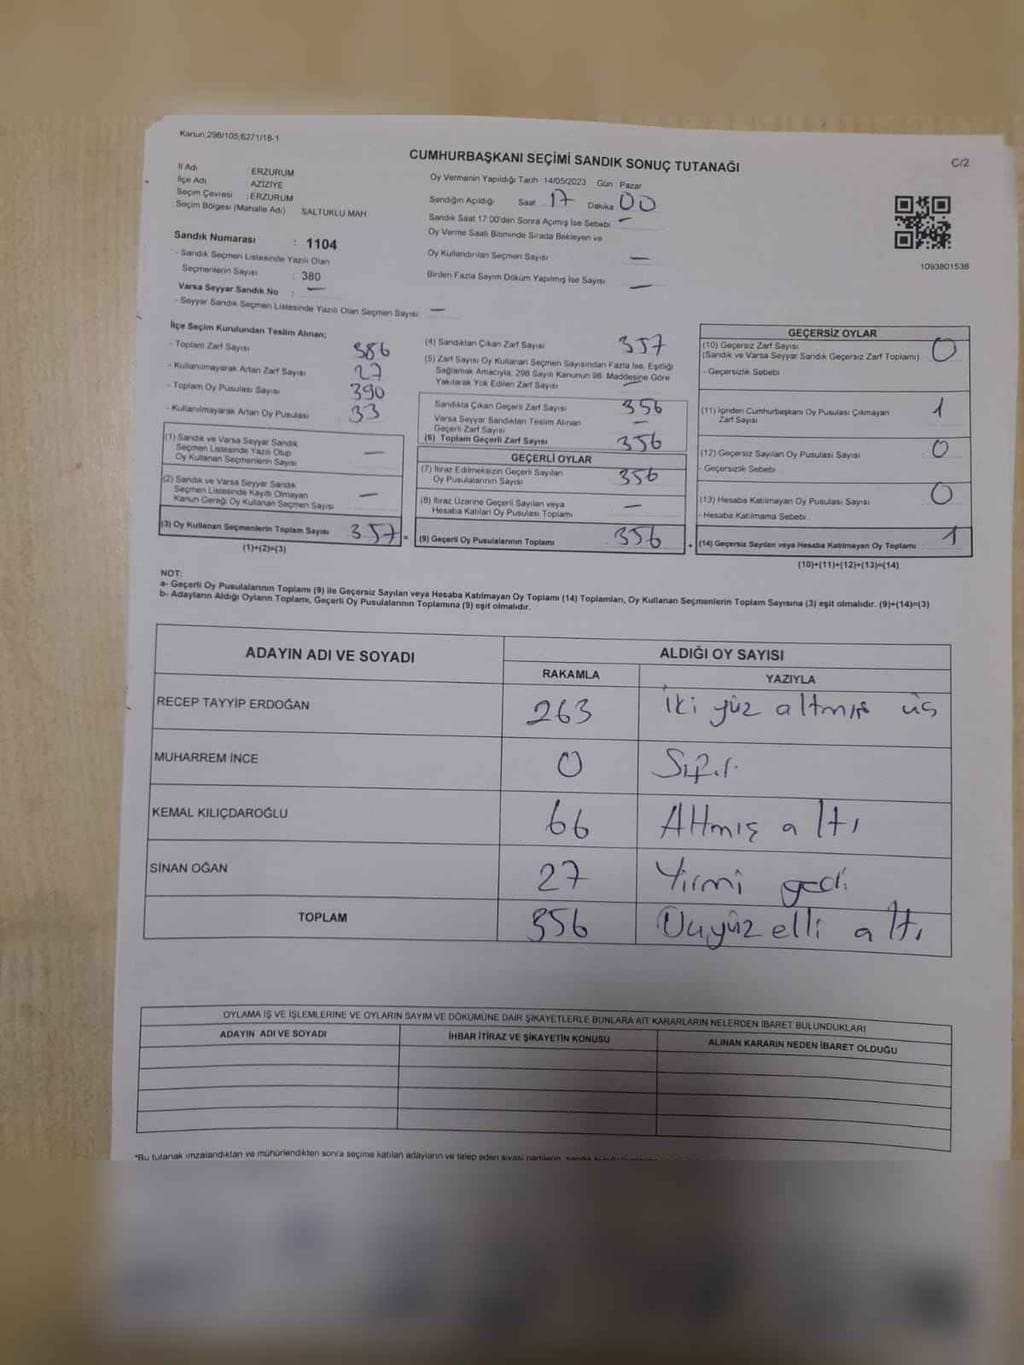 Kanun,298/105,6271/18-1
CUMHURBAŞKANI SEÇİMİ SANDIK SONUÇ TUTANAĞI
C/2
İl Adı ERZURUM
İlçe Adı AZİZİYE
Seçim Çevresi : ERZURUM
Seçim Bölgesi (Mahalle Adı) SALTUKLU MAH
Sandık Numarası : 1104
- Sandık Seçmen Listesinde Yazılı Olan
Seçmenlerin Sayısı : 380
Varsa Seyyar Sandık No : —
- Seyyar Sandık Seçmen Listesinde Yazılı Olan Seçmen Sayısı —
Oy Vermenin Yapıldığı Tarih :14/05/2023 Gün : Pazar
Sandığın Açıldığı Saat 17 Dakika 00
Sandık Saat 17:00'den Sonra Açımış İse Sebebi —
Oy Verme Saati Bitiminde Sırada Bekleyen ve
Oy Kullandırılan Seçmen Sayısı —
Birden Fazla Sayım Döküm Yapılmış İse Sayısı —
1093801536
İlçe Seçim Kurulundan Teslim Alınan;
- Toplam Zarf Sayısı 386
- Kullanılmayarak Artan Zarf Sayısı 27
- Toplam Oy Pusulası Sayısı 390
- Kullanılmayarak Artan Oy Pusulası 33
(1) Sandık ve Varsa Seyyar Sandık
Seçmen Listesinde Yazılı Olup
Oy Kullanan Seçmenlerin Sayısı —
(2) Sandık ve Varsa Seyyar Sandık
Seçmen Listesinde Kayıtlı Olmayan
Kanun Gereği Oy Kullanan Seçmen Sayısı —
(3) Oy Kullanan Seçmenlerin Toplam Sayısı 357 =
(1)+(2)=(3)
(4) Sandıktan Çıkan Zarf Sayısı 357
(5) Zarf Sayısı Oy Kullanan Seçmen Sayısından Fazla İse, Eşitliği
Sağlamak Amacıyla, 298 Sayılı Kanunun 98. Maddesine Göre
Yakılarak Yok Edilen Zarf Sayısı —
Sandıkta Çıkan Geçerli Zarf Sayısı 356
Varsa Seyyar Sandıktan Teslim Alınan
Geçerli Zarf Sayısı —
(6) Toplam Geçerli Zarf Sayısı 356
GEÇERLİ OYLAR
(7) İtiraz Edilmeksizin Geçerli Sayılan
Oy Pusulalarının Sayısı 356
(8) İtiraz Üzerine Geçerli Sayılan veya
Hesaba Katılan Oy Pusulası Toplamı —
(9) Geçerli Oy Pusulalarının Toplamı 356 +
GEÇERSİZ OYLAR
(10) Geçersiz Zarf Sayısı 0
(Sandık ve Varsa Seyyar Sandık Geçersiz Zarf Toplamı)
- Geçersizlik Sebebi
(11) İçinden Cumhurbaşkanı Oy Pusulası Çıkmayan 1
Zarf Sayısı
(12) Geçersiz Sayılan Oy Pusulası Sayısı 0
- Geçersizlik Sebebi
(13) Hesaba Katılmayan Oy Pusulası Sayısı 0
- Hesaba Katılmama Sebebi
(14) Geçersiz Sayılan veya Hesaba Katılmayan Oy Toplamı 1
(10)+(11)+(12)+(13)=(14)
NOT:
a- Geçerli Oy Pusulalarının Toplamı (9) ile Geçersiz Sayılan veya Hesaba Katılmayan Oy Toplamı (14) Toplamları, Oy Kullanan Seçmenlerin Toplam Sayısına (3) eşit olmalıdır. (9)+(14)=(3)
b- Adayların Aldığı Oyların Toplamı, Geçerli Oy Pusulalarının Toplamına (9) eşit olmalıdır.
ADAYIN ADI VE SOYADI ALDIĞI OY SAYISI
RAKAMLA YAZIYLA
RECEP TAYYİP ERDOĞAN 263 iki yüz altmış üç
MUHARREM İNCE 0 Sıfır
KEMAL KILIÇDAROĞLU 66 Altmış altı
SİNAN OĞAN 27 Yirmi yedi
TOPLAM 356 Üçyüz elli altı
OYLAMA İŞ VE İŞLEMLERİNE VE OYLARIN SAYIM VE DÖKÜMÜNE DAİR ŞİKAYETLERLE BUNLARA AİT KARARLARIN NELERDEN İBARET BULUNDUKLARI
ADAYIN ADI VE SOYADI İHBAR İTİRAZ VE ŞİKAYETİN KONUSU ALINAN KARARIN NEDEN İBARET OLDUĞU
*Bu tutanak imzalandıktan ve mühürlendikten sonra seçime katılan adayların ve talep eden siyasi partilerin,